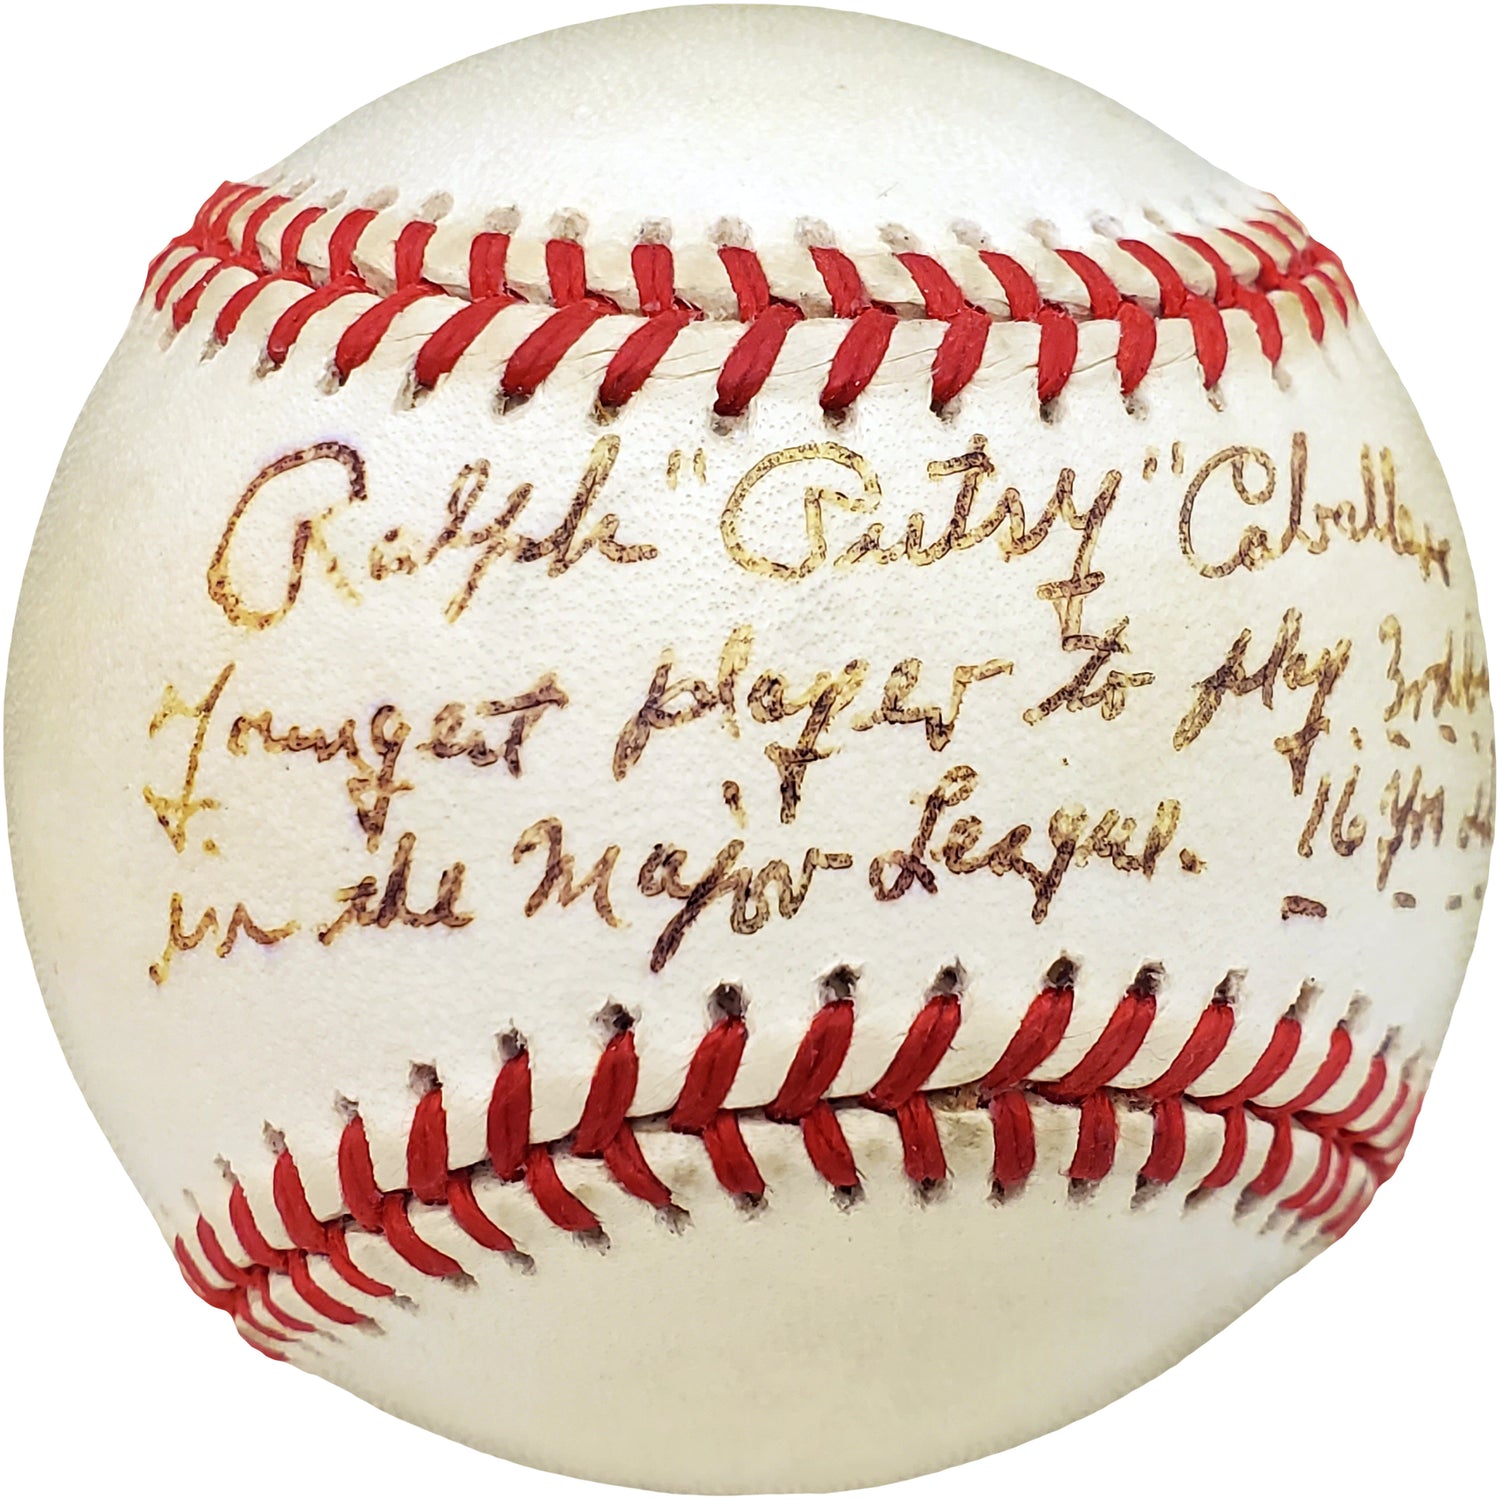 Ralph "Putsy" Caballero
Youngest player to play 3rd
in the Major Leagues. 16 yrs